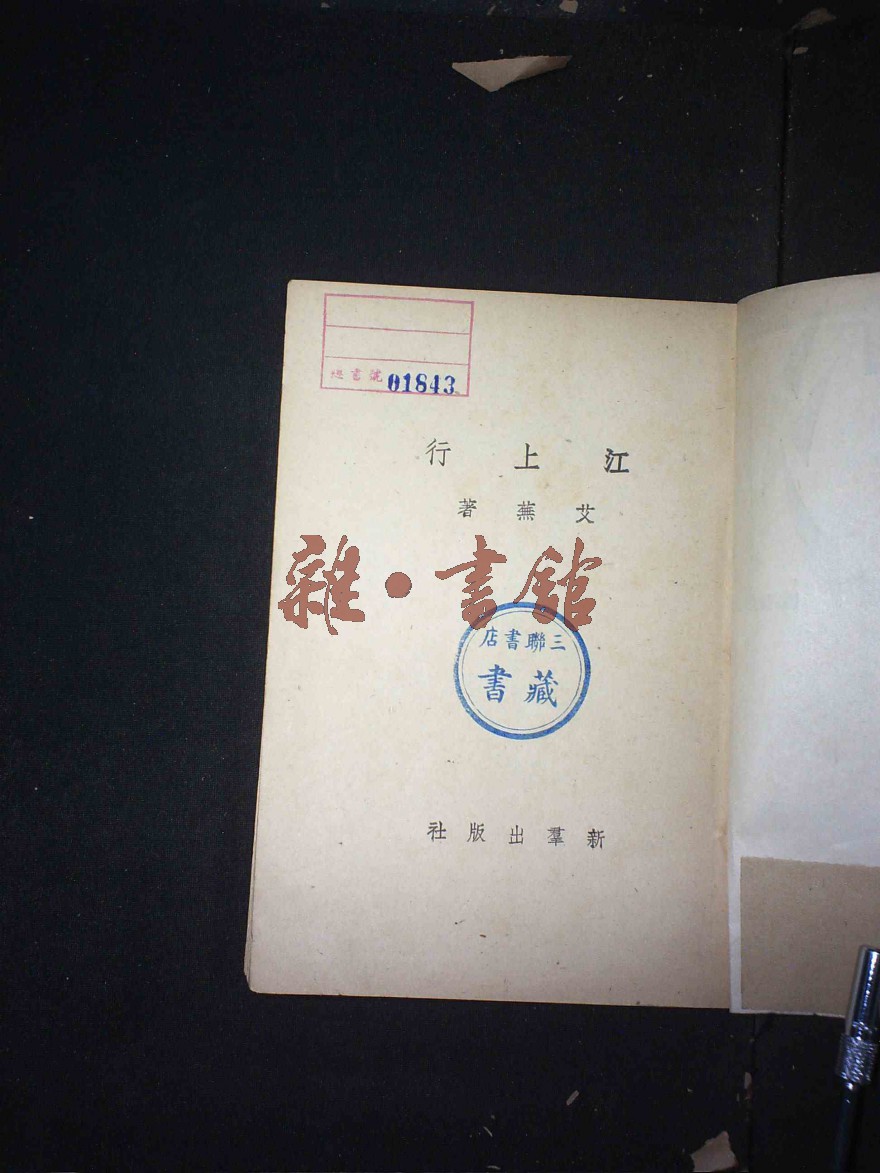 總書號 01843
江上行
艾蕪著
雜·書館
三聯書店
藏書
新羣出版社